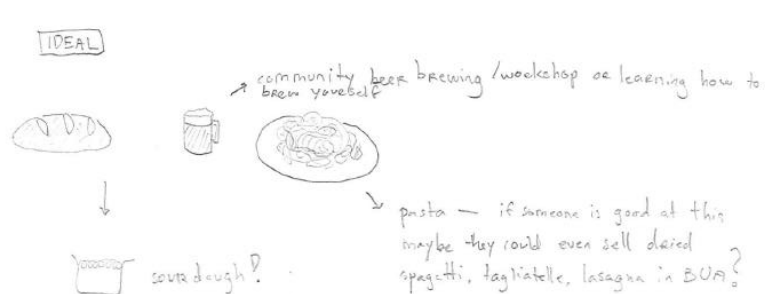 IDEAL
community beer brewing/workshop or learning how to
brew yourself
pasta — if someone is good at this
maybe they could even sell dried
sourdough?
spagetti, tagliatelle, lasagna in BUA?